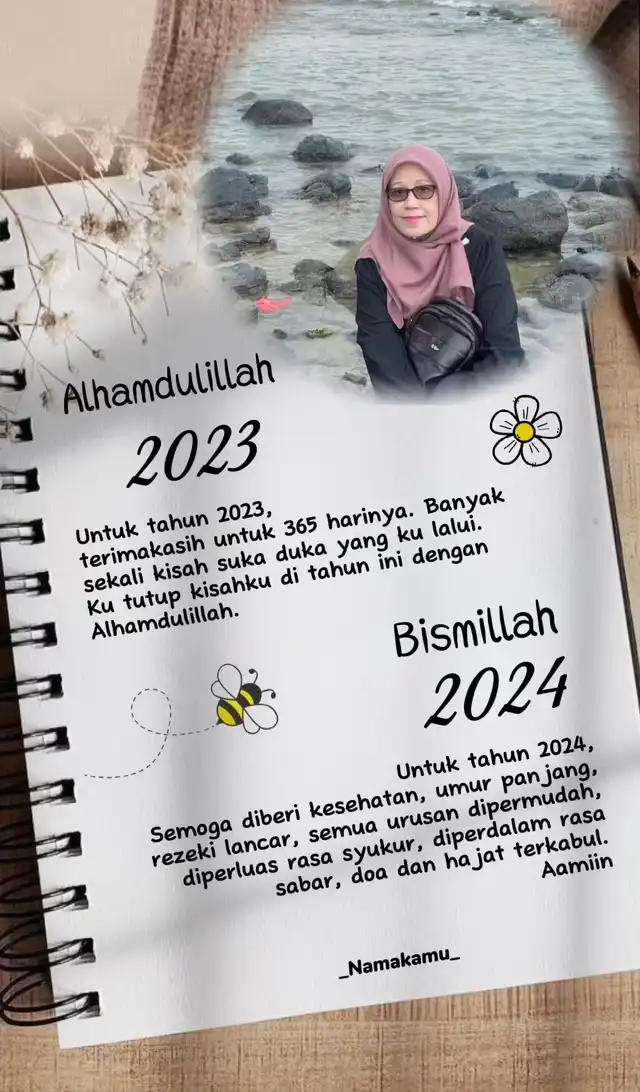 Alhamdulillah
2023
Untuk tahun 2023,
terimakasih untuk 365 harinya. Banyak
sekali kisah suka duka yang ku lalui.
Ku tutup kisahku di tahun ini dengan
Alhamdulillah.
Bismillah
2024
Untuk tahun 2024,
Semoga diberi kesehatan, umur panjang,
rezeki lancar, semua urusan dipermudah,
diperluas rasa syukur, diperdalam rasa
sabar, doa dan hajat terkabul.
Aamiin
_Namakamu_